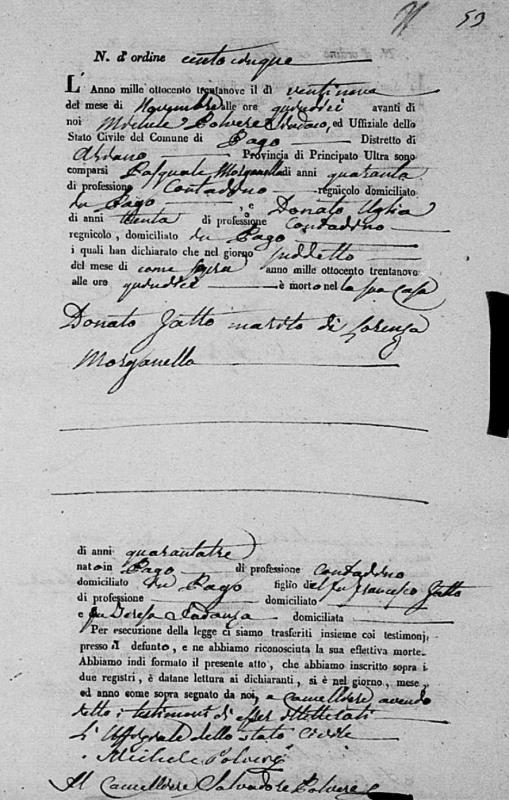 53
N. d'ordine cento cinque
L'Anno mille ottocento trentanove il dì ventinove
del mese di Novembre alle ore quindici avanti di
noi Michele Polvere Sindaco, ed Uffiziale dello
Stato Civile del Comune di Pago Distretto di
Ariano Provincia di Principato Ultra sono
comparsi Pasquale Morganella di anni quaranta
di professione Contadino regnicolo domiciliato
in Pago, e Donato Uglia
di anni trenta di professione Contadino
regnicolo, domiciliato in Pago
i quali han dichiarato che nel giorno suddetto
del mese di come sopra anno mille ottocento trentanove
alle ore quindici è morto nel la sua casa
Donato Gatto marito di Lorenza
Morganella
di anni quarantatre
nato in Pago di professione Contadino
domiciliato in Pago figlio del fu Francesco Gatto
di professione domiciliato
e fu Teresa domiciliata
Per esecuzione della legge ci siamo trasferiti insieme coi testimonj,
presso il defunto, e ne abbiamo riconosciuta la sua effettiva morte.
Abbiamo indi formato il presente atto, che abbiamo inscritto sopra i
due registri, è datane lettura ai dichiaranti, si è nel giorno, mese,
ed anno come sopra segnato da noi, e cancelliere avendo
detto i testimoni di esser illetterati
L'Uffiziale dello stato civile
Michele Polvere
Il Cancelliere Salvadore Polvere